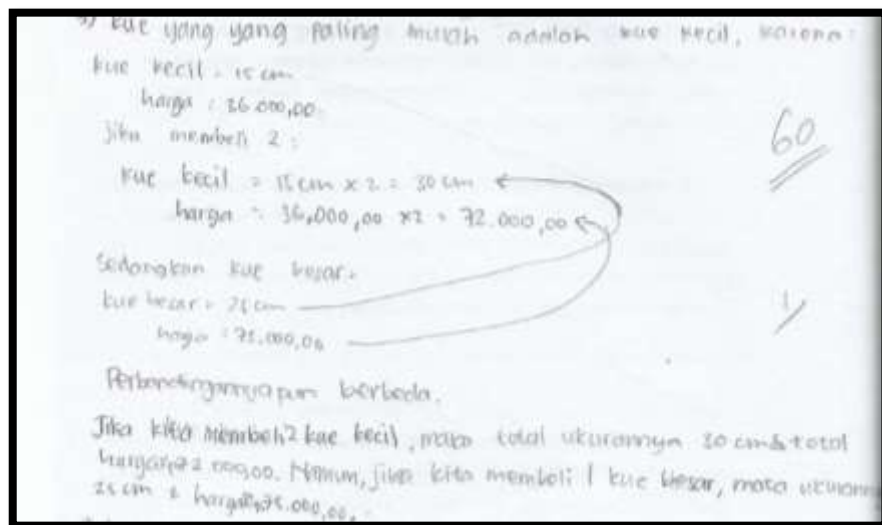 kue yang yang paling murah adalah kue kecil, karena:
kue kecil = 15 cm
harga : 36.000,00
Jika membeli 2 :
60
kue kecil = 15 cm x 2 = 30 cm
harga = 36,000,00 x2 = 72.000,00
Sedangkan kue besar.
kue besar = 25 cm
1
harga = 75.000,00
Perbandingannyapun berbeda.
Jika kita membeli 2 kue kecil, maka total ukurannya 30 cm & total
harganya 72.000,00. Namun, jika kita membeli 1 kue besar, maka ukurannya
25 cm & harganya 75.000,00.